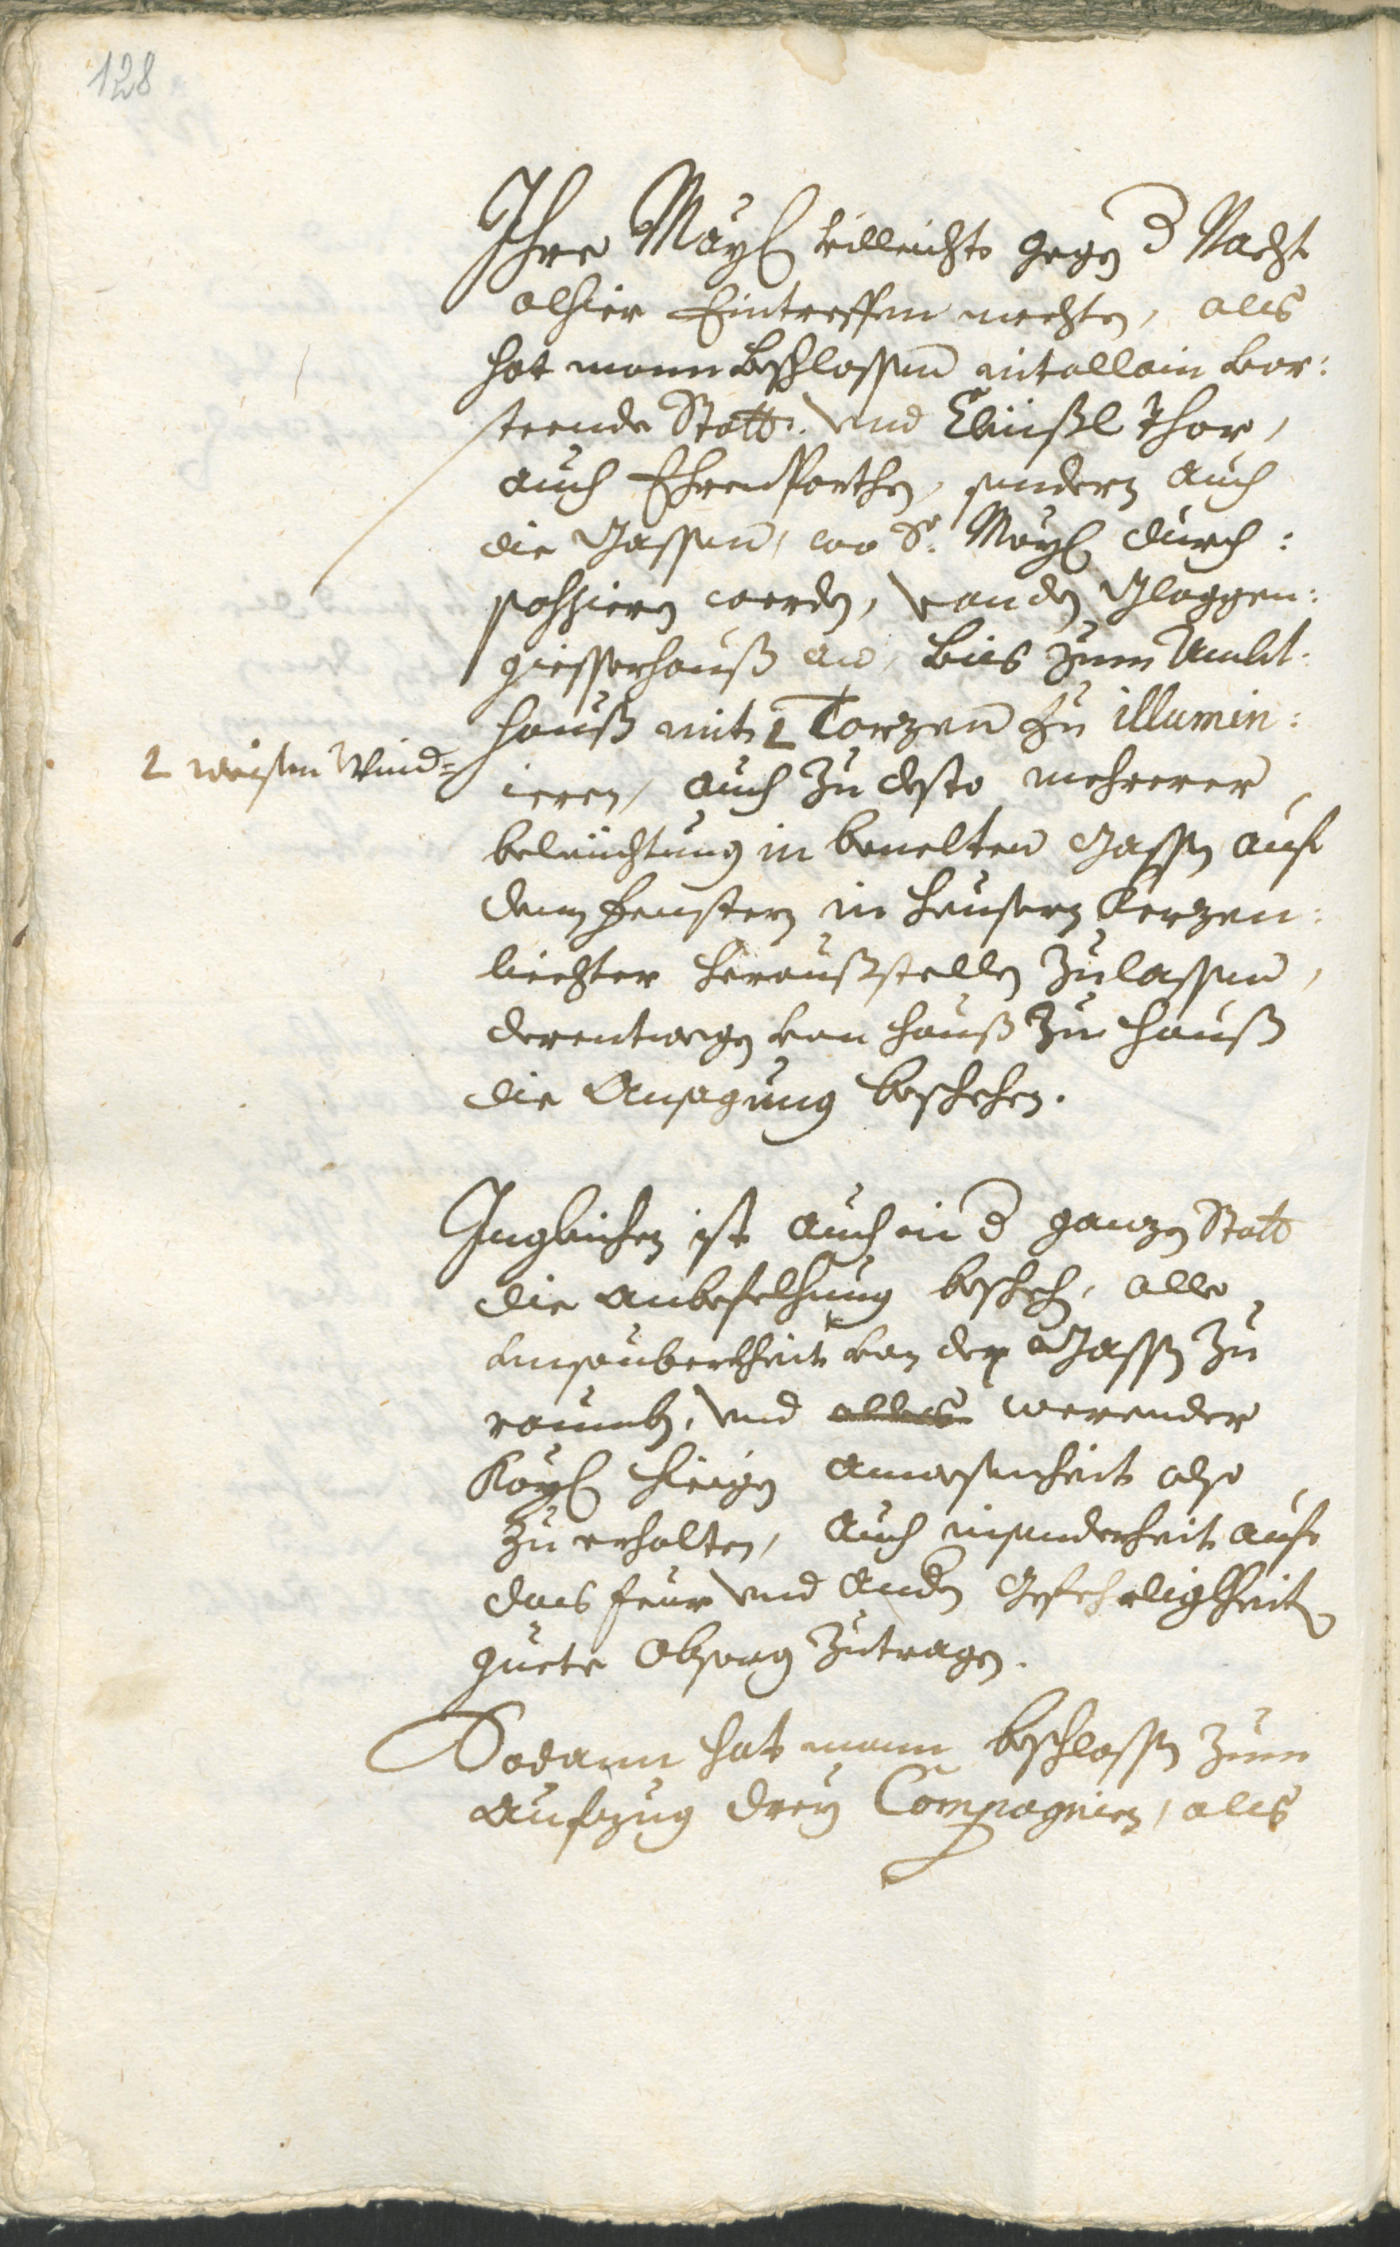 128
Ihre Mayl villeicht gegen d Nacht
alhier Eintreffen mechte, alls
hat mann beschlossen nit allain vor:
steende Statt: und Claüßl Thor,
auch Ehrenporthen, sondern auch
die Gassen, wo S.e Mayl durch:
passiern werden, von den Gloggen:
giesserhauß an, biss zum Ambt:
hauß mit 2 Torzen zu illumin:
2 weissen Wind=
ieren, auch zu desto mehrerer
beleüchtung in bemelten Gassen auf
denen Fenstern in Heusern Kerzen:
liechter heraußstellen zulassen,
derentwegen von Hauß zu Hauß
die Ansagung beschehen.
Ingleichen ist auch in d ganzen Statt
die anbefelhung besheh, alle
unsauberkheit von der Gassen zu
raumben, und werender
Kayl hieigen anwesenheit also
zu erhalten, auch insonderheit auf
dass feur und andern Gefehrligkheiten
guete Obsorg zutragen.
Sodann hat mann beschlossen zum
Aufzug drey Compagnien, alls